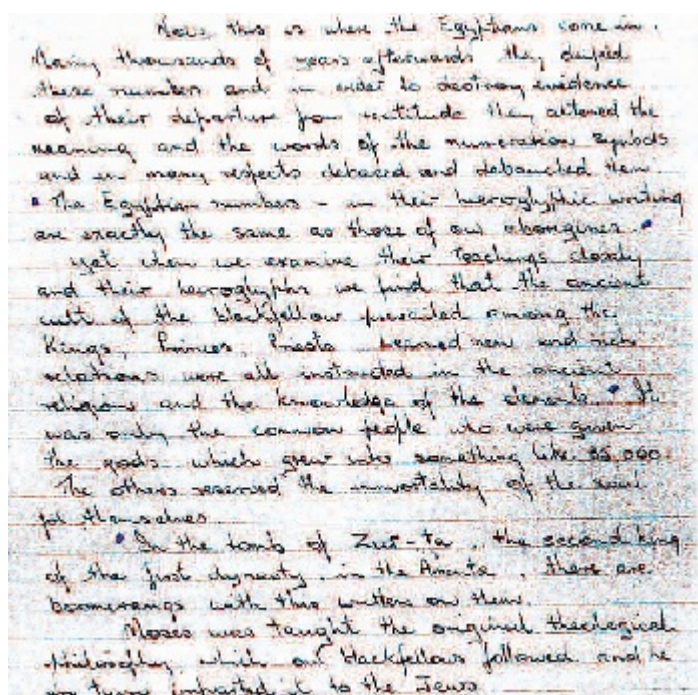 Now this is where the Egyptians come in.
Many thousands of years afterwards they deified
these numbers and in order to destroy evidence
of their departure from rectitude they altered the
meaning and the words of the numeration symbols
and in many respects debased and debauched them
The Egyptian numbers - in their hieroglyphic writing
are exactly the same as those of our aborigines.
Yet when we examine their teachings closely
and their hieroglyphs we find that the ancient
cult of the blackfellow prevailed among the
Kings, Princes Priests learned men and rich
relations were all instructed in the ancient
religion and the knowledge of the deserts. It
was only the common people who were given
the gods which grew into something like 35,000
The others reserved the immortality of the soul
for themselves
In the tomb of the second king
of the first dynasty in the there are
boomerangs with this written on them.
Moses was taught the original theological
philosophy which our blackfellows followed and he
in turn imparted it to the Jews